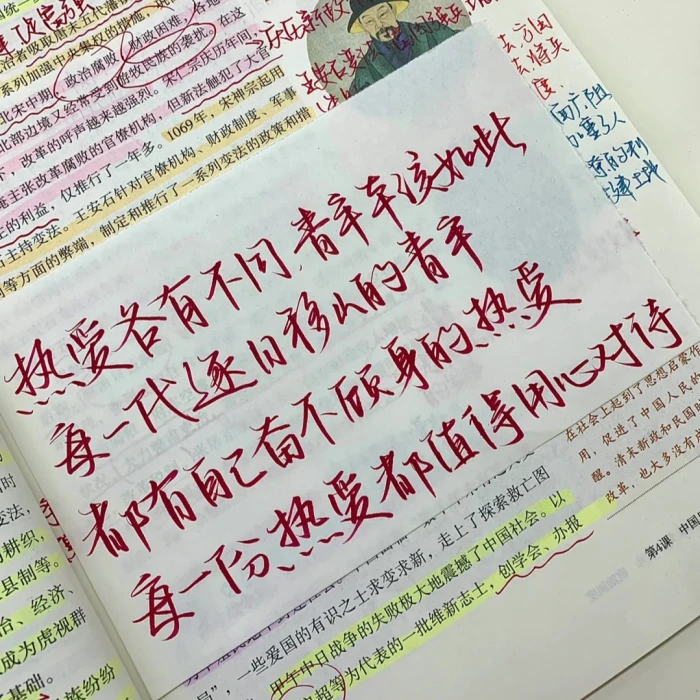 治者吸取唐末五代藩镇
系列加强中央集权的措施，
政治腐败、财政困难，各地
北宋中期，
北部边境又经常受到游牧民族的袭扰。在这
下，改革的呼声越来越强烈。宋仁宗庆历年间，
淹主张改革腐败的官僚机构，但新法触犯了大官
主的利益，仅推行了一年多。1069年，宋神宗起用
石主持变法。王安石针对官僚机构、财政制度、军事
等方面的弊端，制定和推行了一系列变法的政策和措
热爱各有不同，青年本该如此
每一代逐日移山的青年
都有自己奋不顾身的热爱
每一份热爱都值得用心对待
在社会上起到了思想启蒙作
用，促进了中国人民的
醒。清末新政和民国
改革，也大多没
第4课 中国
变法，
耕织，
县制等。
治、经济、
成为虎视群
基础。
族纷纷
走上了探索救亡图
一些爱国的有识之士求变求新，
甲午中日战争的失败极大地震撼了中国社会。以
超等为代表的一批维新志士，创学会、办报